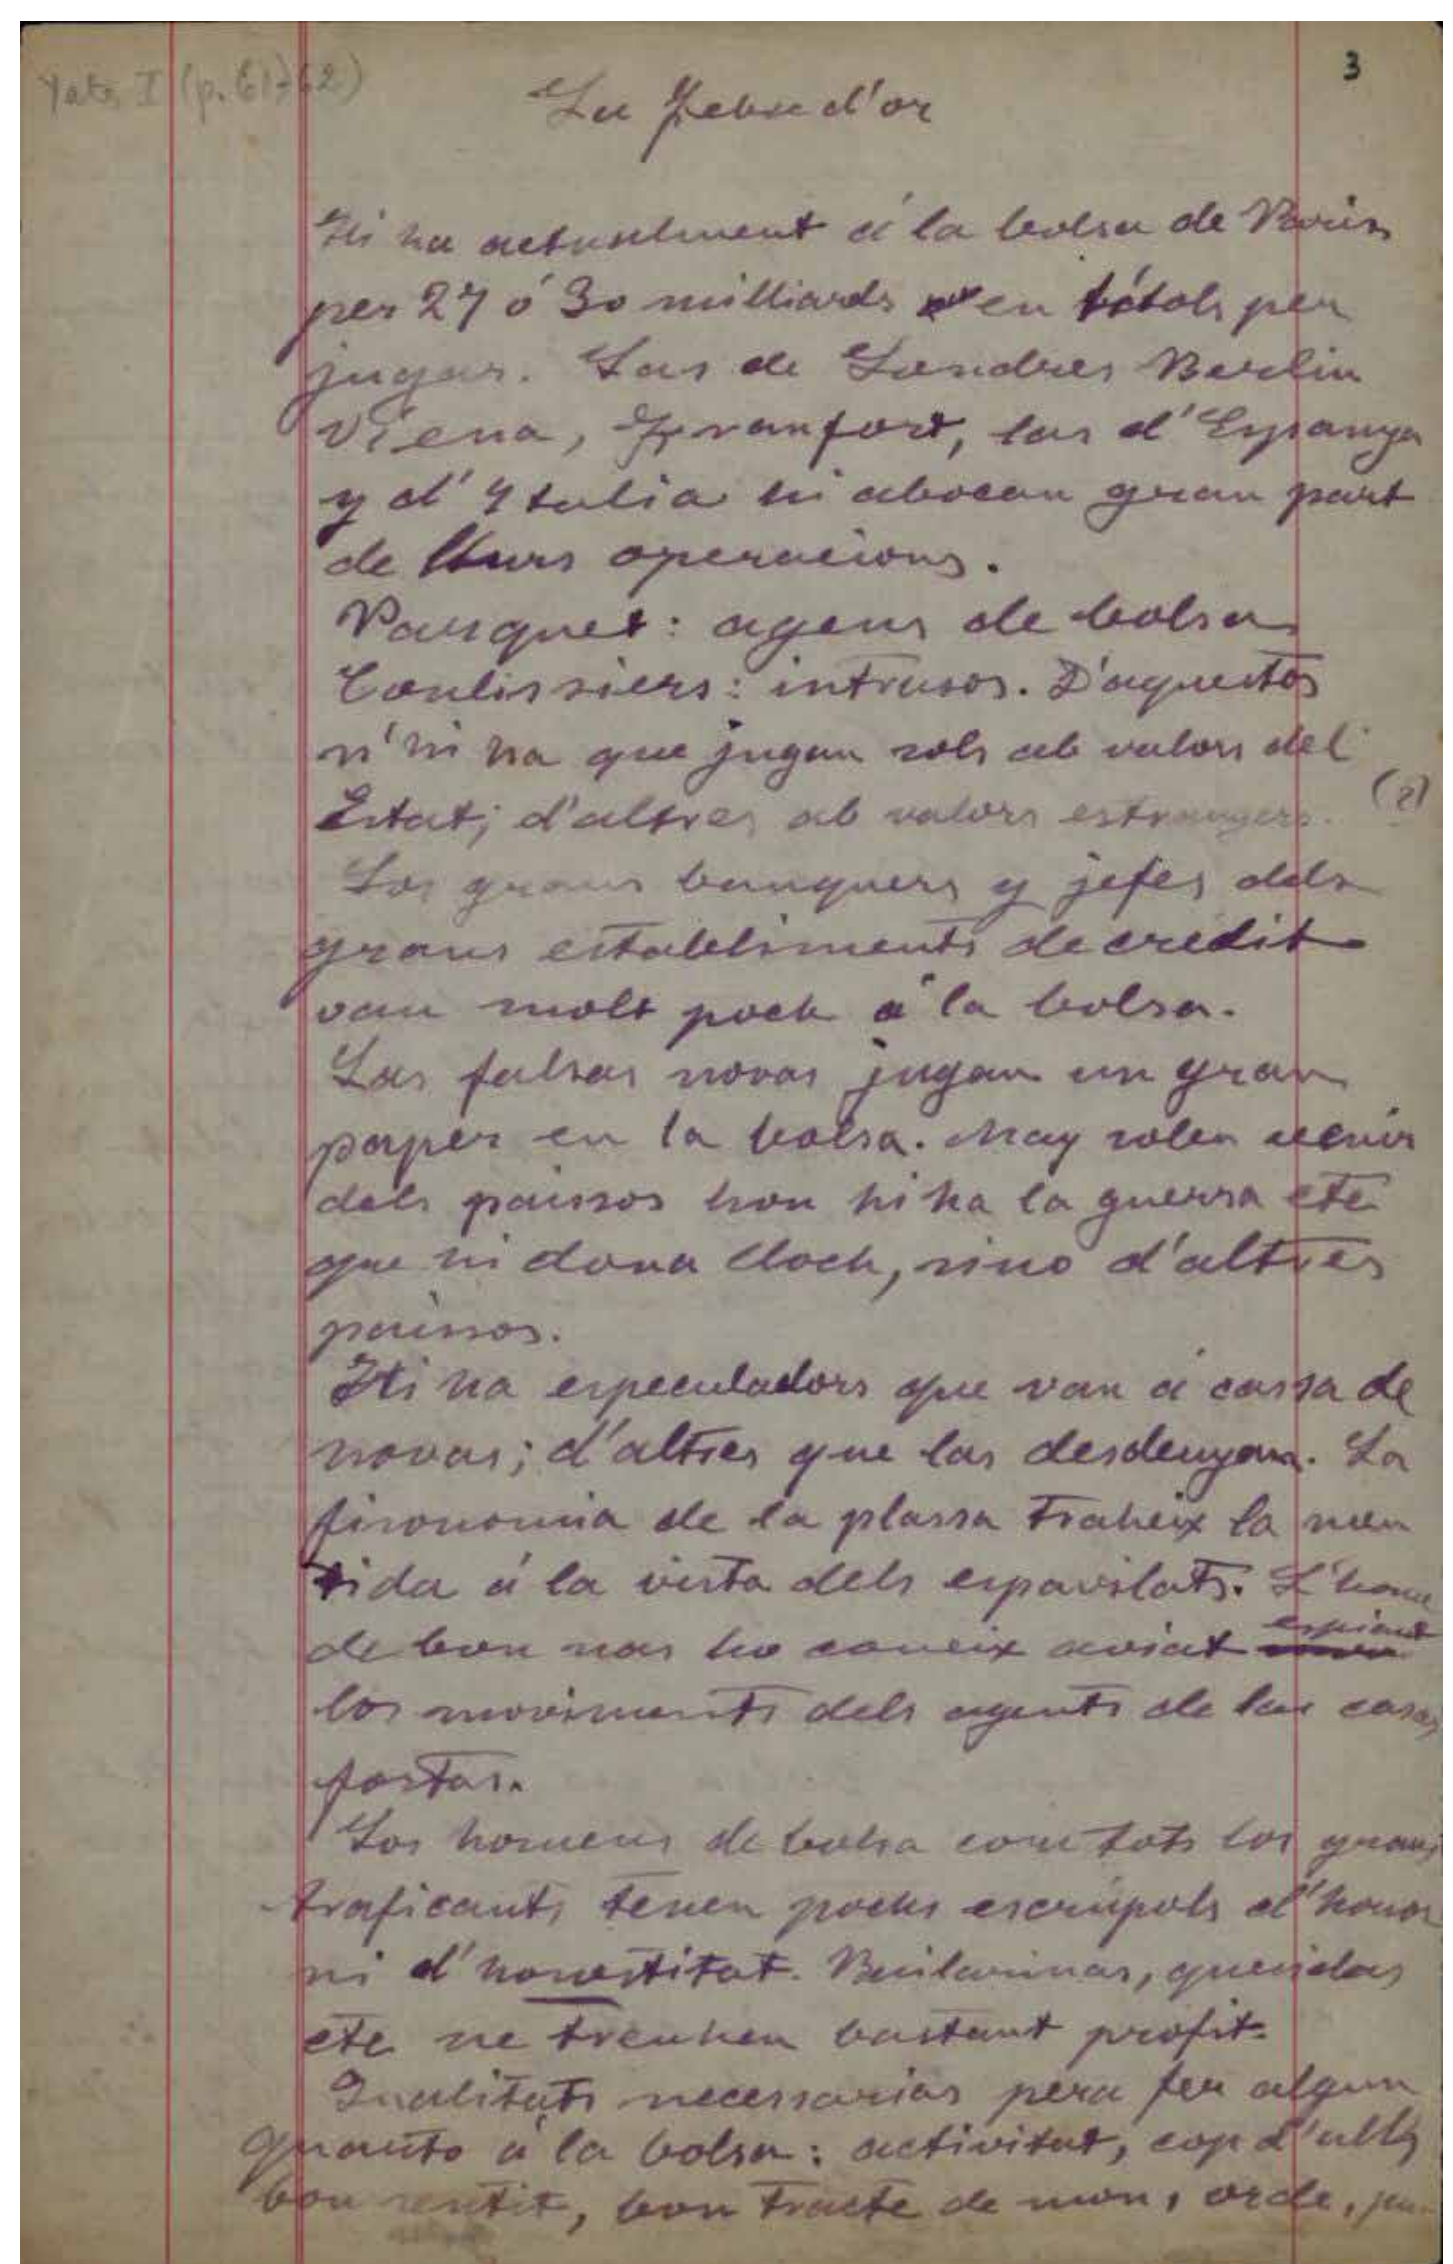 3
(p. 61-62)
La Febre d'or
Hi ha actualment á la bolsa de Paris
per 27 ó 30 milliards en títols per
jugar. Las de Londres Berlin
Viena, Franfort, las d'Espanya
y d'Ytalia hi abocan gran part
de llurs operacions.
Parquet: agens de bolsa
Coulissiers: intrusos. D'aquestos
n'hi ha que jugan sols ab valors del
Estat; d'altres ab valors estrangers. (2)
Los grans banquers y jefes dels
grans establiments de crédit
van molt poch á la bolsa.
Las falsas novas jugan un gran
paper en la bolsa. May solen venir
dels paissos hon hi ha la guerra etc
que hi dona lloch, sino d'altres
paissos.
Hi ha especuladors que van á cassa de
novas; d'altres que las desdenyan. La
fisonomia de la plassa traheix la men
tida á la vista dels espavilats. L'home
de bon nas ho coneix aviat espiant
los moviments dels agents de las casas
fortas.
Los homens de bolsa com tots los grans
traficants tenen pochs escrúpols d'honor
ni d'honestitat. Bailarinas, queridas
etc ne treuhen bastant profit.
Qualitats necessarias pera fer algun
quanto á la bolsa: activitat, cop d'ull,
bon sentit, bon tracte de mon, orde,